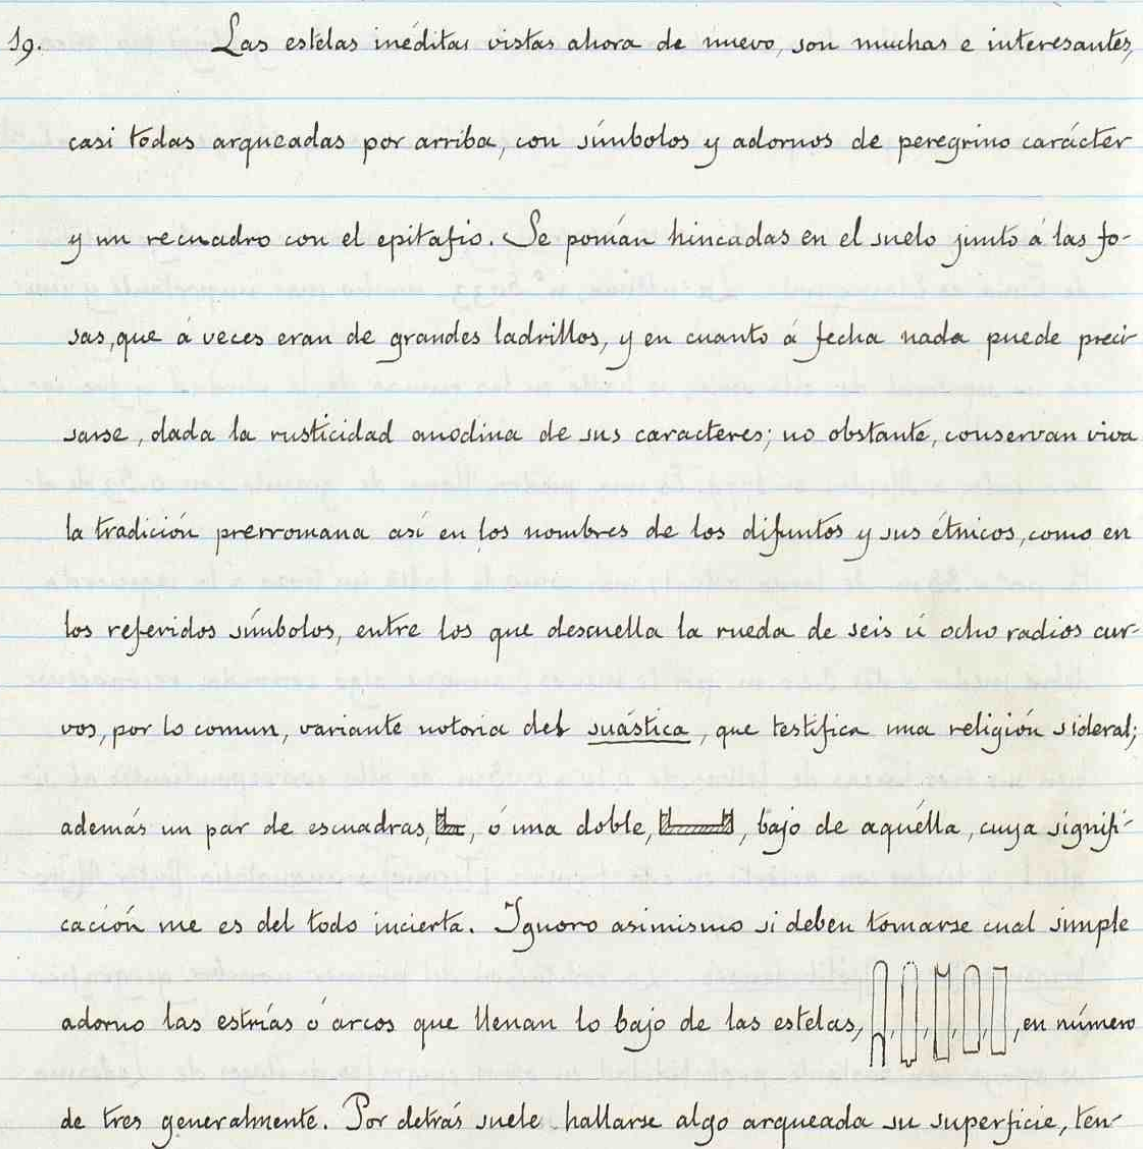 19. Las estelas inéditas vistas ahora de nuevo, son muchas e interesantes,
casi todas arqueadas por arriba, con símbolos y adornos de peregrino carácter
y un recuadro con el epitafio. Se ponían hincadas en el suelo junto á las fo-
sas, que á veces eran de grandes ladrillos, y en cuanto á fecha nada puede preci-
sarse, dada la rusticidad anodina de sus caracteres; no obstante, conservan viva
la tradición prerromana así en los nombres de los difuntos y sus étnicos, como en
los referidos símbolos, entre los que descuella la rueda de seis ú ocho radios cur-
vos, por lo comun, variante notoria del suástica, que testifica una religión sideral;
además un par de escuadras, , ó una doble, , bajo de aquélla, cuya signifi-
cación me es del todo incierta. Ignoro asimismo si deben tomarse cual simple
adorno las estrías ó arcos que llenan lo bajo de las estelas, , , , , , en número
de tres generalmente. Por detrás suele hallarse algo arqueada su superficie, ten-